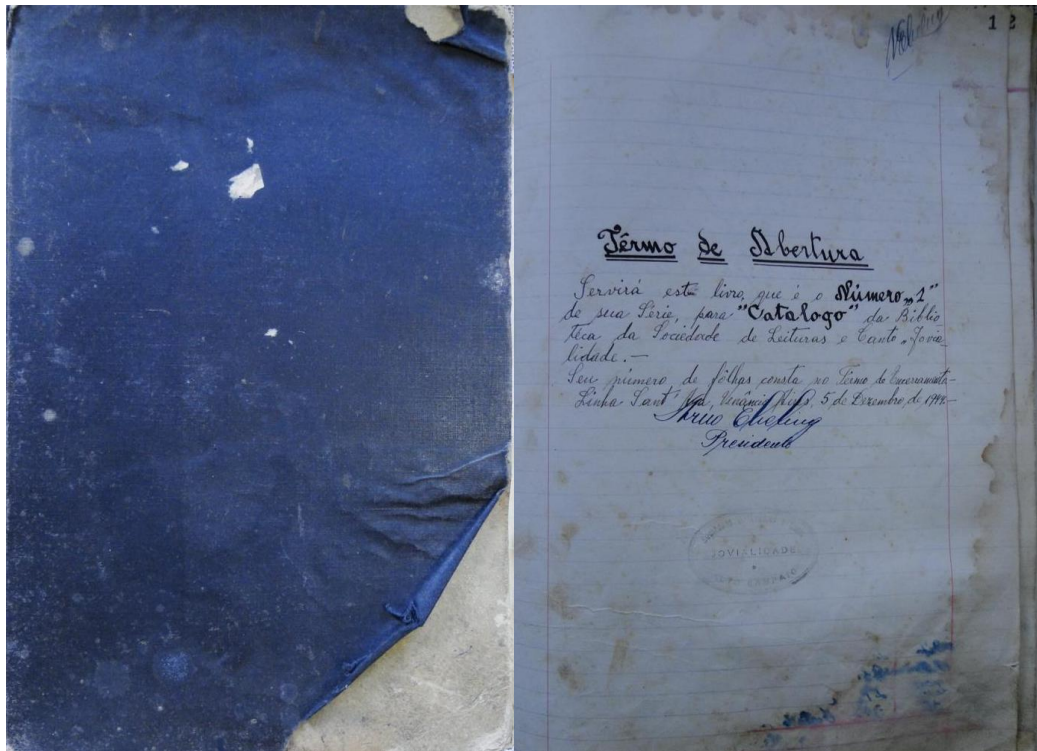 1 2
Têrmo de Abertura
Servirá este livro, que é o Número „1"
de sua Série, para "Catalogo" da Biblio
teca da Sociedade de Leituras e Canto „Jovia-
lidade. —
Seu número de fôlhas consta no Têrmo de Encerramento.—
Linha Sant' Venâncio Aires, 5 de Dezembro de 1949.—
Ebeling
Presidente
JOVIALIDADE